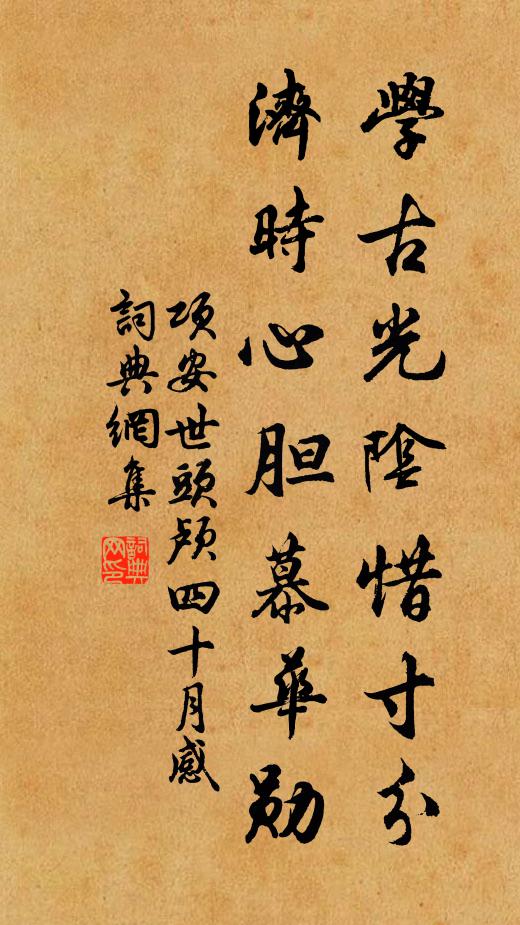 學古光陰惜寸分
濟時心胆慕華勛
項安世頭顱四十月感
詞典網集
詞典网印